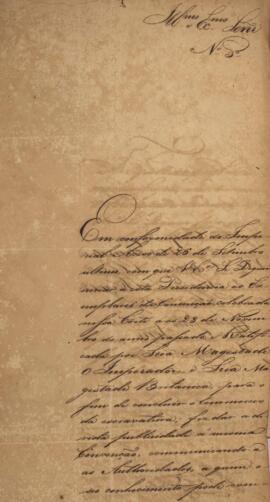 Illmo Exmo Senr
No 5o
Em conformidade do Impe-
rial Aviso de 26 de Setembro
ultimo com que V. Exa Se Dignou
a esta Presidencia os Ex-
emplares da Convenção celebrada
Corte aos 23 de Novem-
bro do anno passado, Ratifi-
cada por Sua Magestade
O Imperador, e Sua Ma-
gestade Britanica para o
fim de concluir o Commercio
de escravatura, fiz dar a de-
vida publicidade á mesma
Convenção, communicando a
as Authoridades, a quem o
seo conhecimento pode